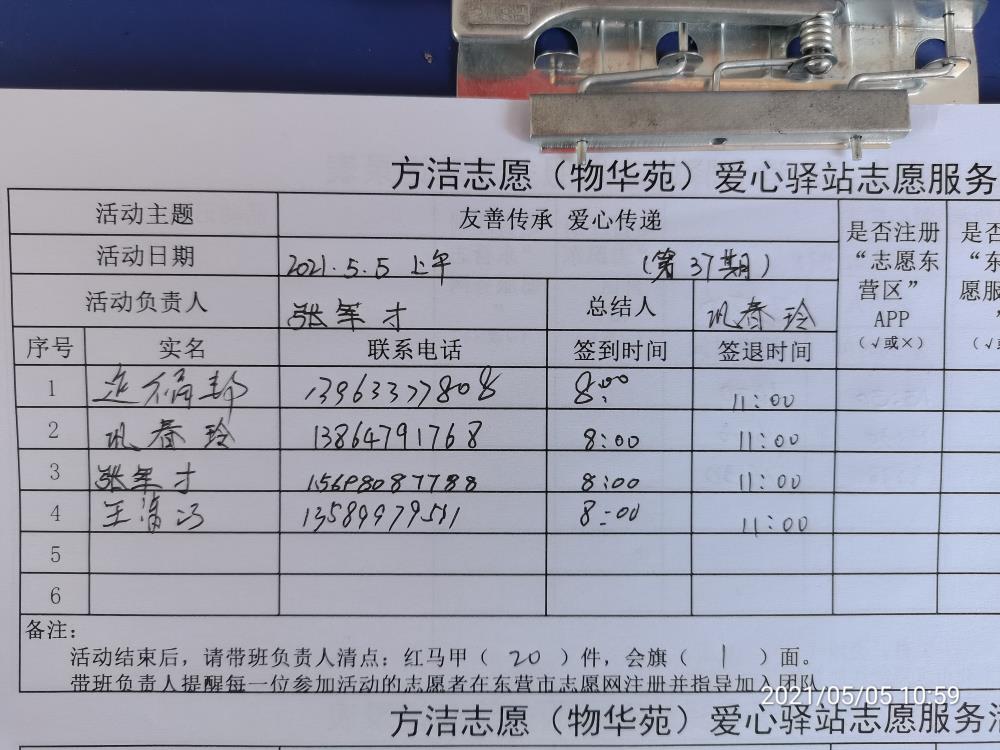 方洁志愿（物华苑）爱心驿站志愿服务
活动主题 友善传承 爱心传递 是否注册“志愿东营区”APP（√或×） 是否“东愿服”（√
活动日期 2021.5.5 上午 （第37期）
活动负责人 张军才 总结人 巩春玲
序号 实名 联系电话 签到时间 签退时间
1 13963377808 8:00 11:00
2 巩春玲 13864791768 8:00 11:00
3 张军才 15698087788 8:00 11:00
4 王 8:00 11:00
5
6
备注：
活动结束后，请带班负责人清点：红马甲（ 20 ）件，会旗（ 1 ）面。
带班负责人提醒每一位参加活动的志愿者在东营市志愿网注册并指导加入团队
2021/05/05 10:59
方洁志愿（物华苑）爱心驿站志愿服务活